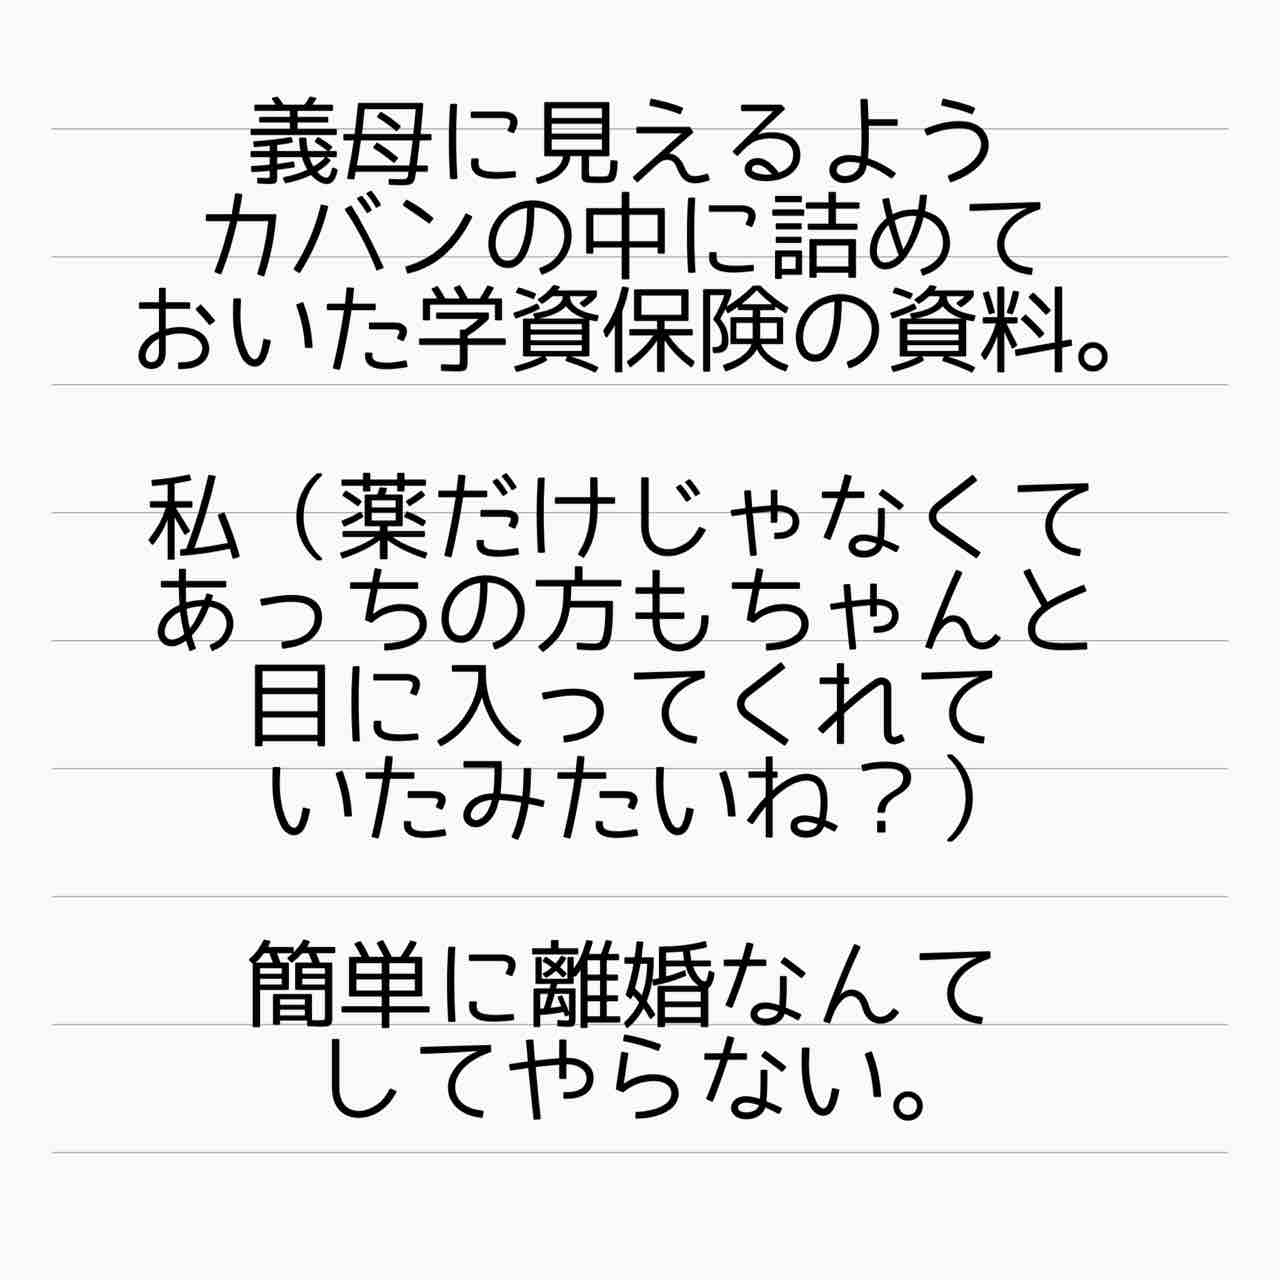 義母に見えるよう
カバンの中に詰めて
おいた学資保険の資料。
私（薬だけじゃなくて
あっちの方もちゃんと
目に入ってくれて
いたみたいね？）
簡単に離婚なんて
してやらない。